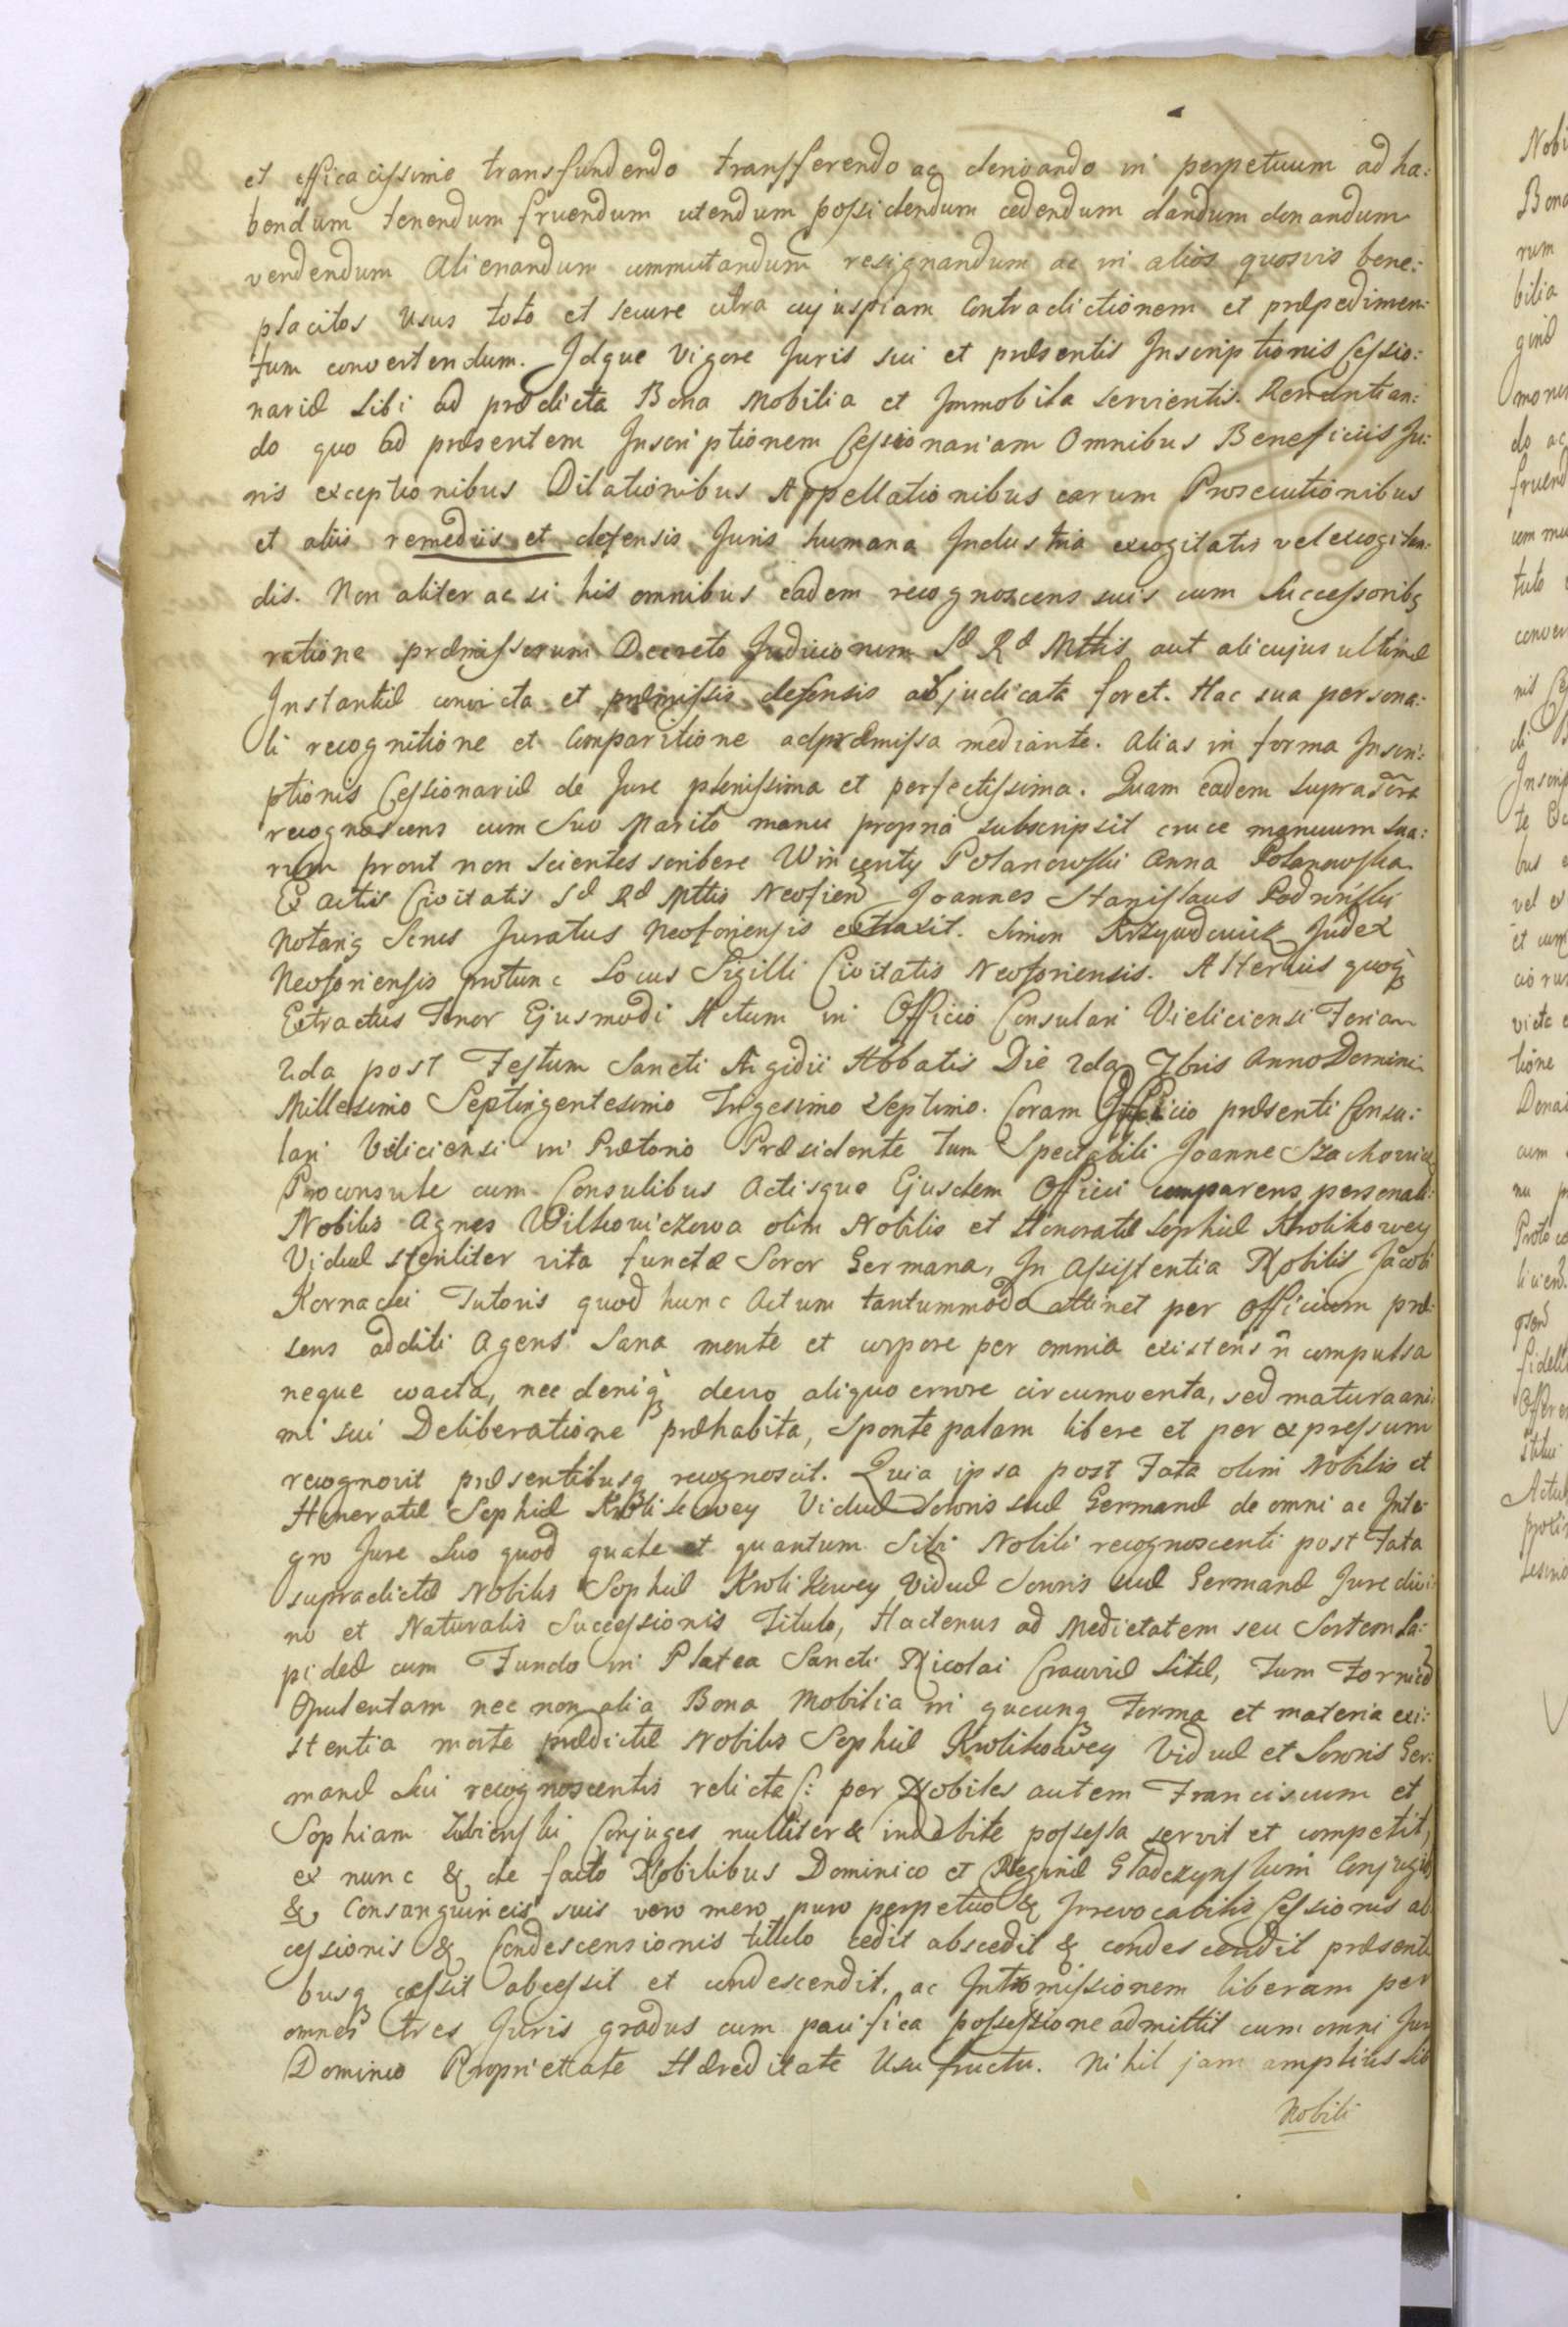 et efficacissime transfundendo transferendo ac derivando in perpetuum ad ha:
bendum tenendum fruendum utendum possidendum cedendum dandum donandum
vendendum Alienandum commutandum resignandum ac in alios quosvis bene:
placitos Usus toto et secure citra cujuspiam Contradictionem et præpedimen:
tum convertendum. Idque Vigore Juris sui et præsentis Inscriptionis Cessio:
nariæ Sibi ad prædicta Bona Mobilia et Immobilia servientis. Renuntian:
do quo ad præsentem Inscriptionem Cessionariam Omnibus Beneficiis Ju:
ris exceptionibus Dilationibus Appellationibus earum Prosecutionibus
et aliis remediis et defensis Juris humana Industria excogitatis vel excogitan:
dis. Non aliter ac si his omnibus eadem recognoscens suis cum Successoribq
ratione præmissorum Decreto Judiciorum Sæ Ræ Mttis aut alicujus ultimæ
Instantiæ convicta et præmissis defensis abjudicata foret. Hac sua persona:
li recognitione et Comparitione ad præmissa mediante. Alias in forma Inscri:
ptionis Cessionariæ de Jure plenissima et perfectissima. Quam eadem supradcta
recognoscens cum Suo Marito manu propria subscripsit cruce manuum sua:
rum prout non scientes scribere Wincenty Polanowski Anna Polanowska
Ex actis Civitatis Sæ Ræ Mttis Neofien Joannes Stanislaus
Notarig Scnes Juratus Neoforiensis extraxit. Simon Judex
Neoforiensis protunc Locus Sigilli Civitatis Neoforiensis. Alterius quoq
Extractus Tenor Ejusmodi Actum in Officio Consulari Vieliciensi Feria
2da post Festum Sancti Ægidii Abbatis Die 2da 7bris Anno Domini
Millesimo Septingentesimo Trigesimo Septimo. Coram Officio præsenti Consu:
lari Vieliciensi in Prætorio Præsidente tum Spectabili Joanne
Proconsule cum Consulibus Actisque Ejusdem Officii comparens personali:
Nobilis Agnes Wilkowiczowa olim Nobilis et Honoratæ Sophiæ Krolikowey
Viduæ steriliter vita functæ Soror Germana, In Assistentia Nobilis Jacobi
Tutoris quod hunc Actum tantummodo attinet per Officium præ:
sens additi Agens Sana mente et corpore per omnia existens n compulsa
neque coacta, nec deniq devio aliquo errore circumventa, sed matura ani:
mi sui Deliberatione præhabita, Sponte palam libere et per expressum
recognovit præsentibusq recognoscit. Quia ipsa post Fata olim Nobilis et
Honoratæ Sophiæ Krolikowey Viduæ Sororis suæ Germanæ de omni ac Inte:
gro Jure Suo quod quale et quantum Sibi Nobili recognoscenti post Fata
supradictæ Nobilis Sophiæ Krolikowey Viduæ Sororis suæ Germanæ Jure divi:
no et Naturalis Successionis Titulo, Hactenus ad Medietatem seu Sortem La:
pideæ cum Fundo in Platea Sancti Nicolai Cracoviæ Sitæ, Tum
Opulentam nec non alia Bona Mobilia in quacunq Forma et materia exi:
stentia morte prædictæ Nobilis Sophiæ Krolikowey Viduæ et Sororis Ger:
manæ Sui recognoscentis relicta: per Nobiles autem Franciscum et
Sophiam Conjuges nulliter & indebite possessa servit et competit,
ex nunc & de facto Nobilibus Dominico et Reginæ Conjugib
& Consanguineis suis vero mero puro perpetuo & Irrevocabilis Cessionis ab
cessionis & Condescensionis titulo cedit abscedit & condescendit præsenti
busq cessit abcessit et condescendit, ac Intromissionem liberam per
omnes tres Juris gradus cum pacifica possessione admittit cum omni Jure
Dominio Proprietate Hæreditate Usufructu. Nihil jam amplius sibi
Nobili